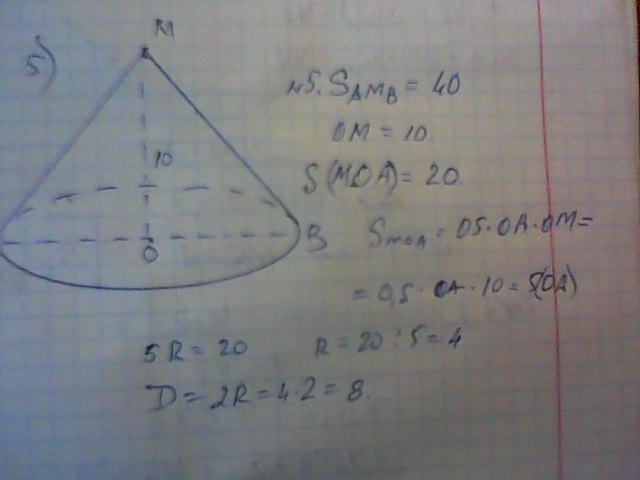 5)
M
10
O
B
№5. S AMB = 40
OM = 10.
S(MOA) = 20.
S MOA = 05·OA·OM =
= 0,5·OA·10 = 5(OA)
5R = 20 R = 20:5 = 4
D = 2R = 4·2 = 8.